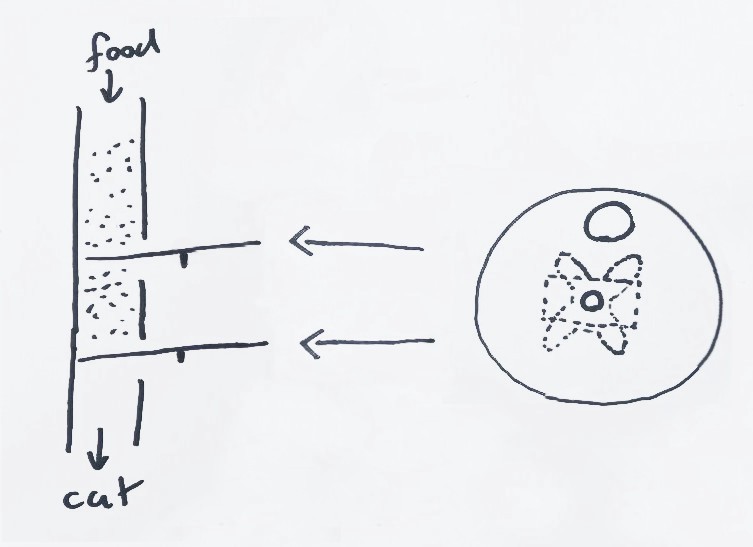 food
cat